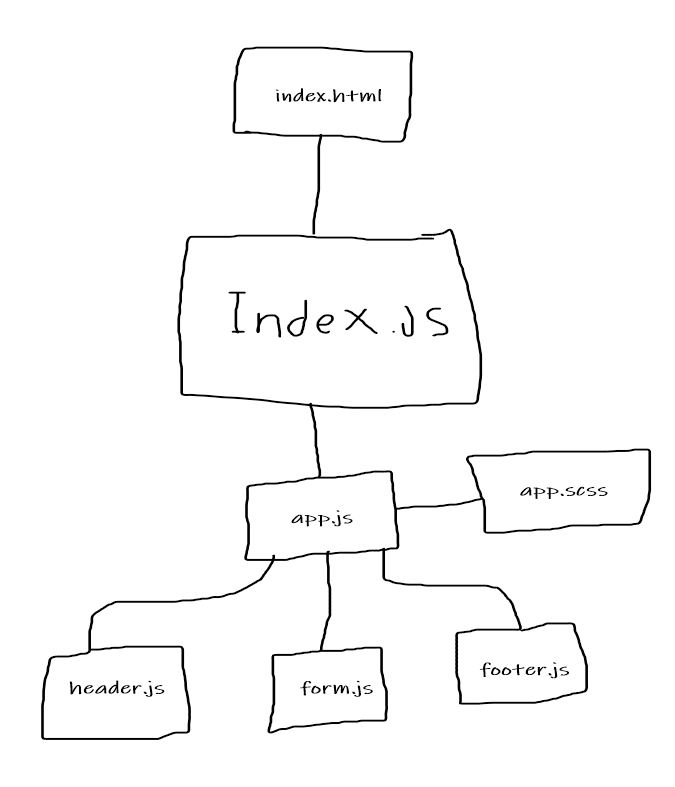 index.html
Index.js
app.js
app.scss
header.js
form.js
footer.js